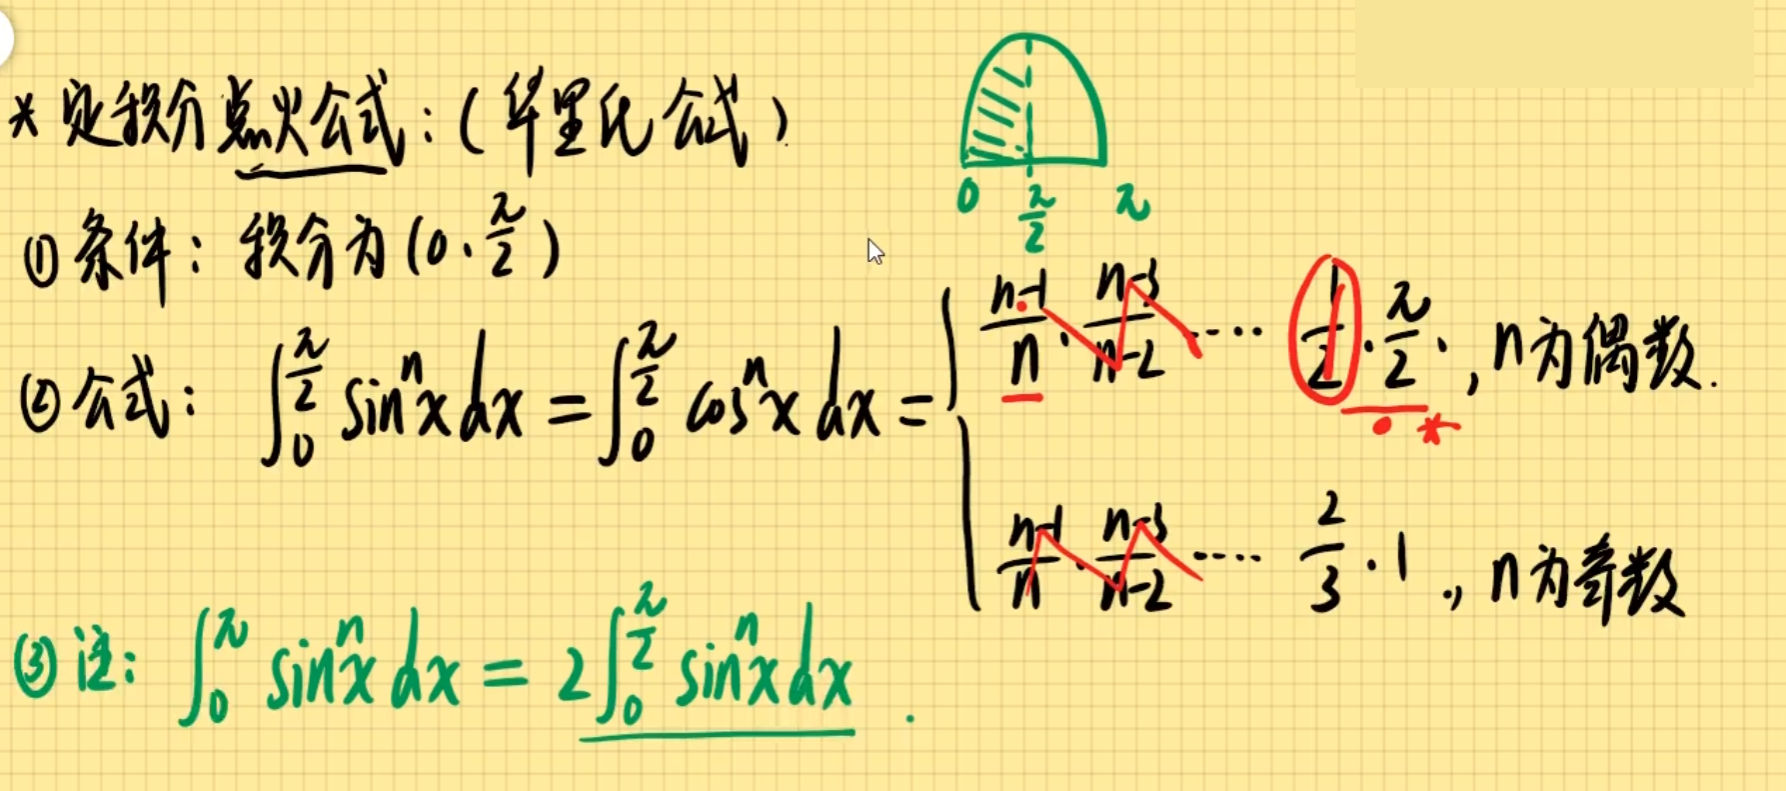 * 定积分点火公式:(华里氏公式)
0 π/2 π
① 条件: 积分为(0·π/2)
② 公式: ∫₀^(π/2) sinⁿx dx = ∫₀^(π/2) cosⁿx dx = { (n-1)/n · (n-3)/(n-2) ···· 1/2 · π/2 ·, n为偶数.
(n-1)/n · (n-3)/(n-2) ···· 2/3 · 1 ., n为奇数
③ 注: ∫₀^π sinⁿx dx = 2∫₀^(π/2) sinⁿx dx .